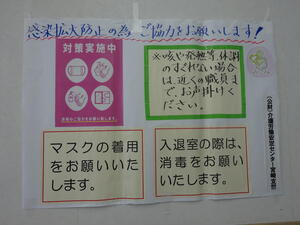 感染拡大防止の為ご協力をお願いします!
対策実施中
※咳や発熱等、体調
のすぐれない場合
は、近くの職員ま
で、お声掛けく
ださい。
マスクの着用
をお願いいた
します。
入退室の際は、
消毒をお願い
いたします。
(公財)介護労働安定センター宮崎支部